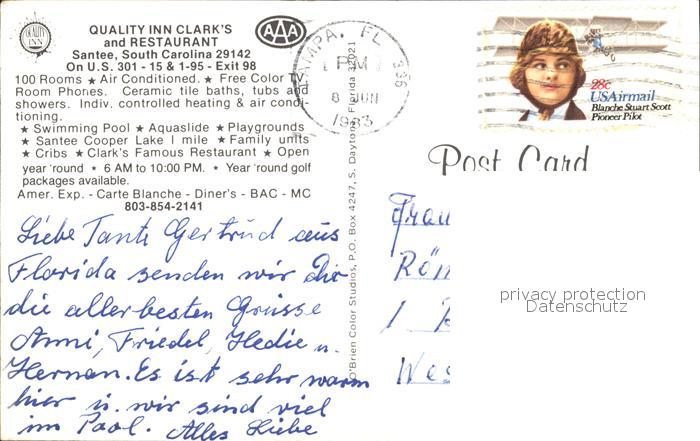 QUALITY INN
QUALITY INN CLARK'S
and RESTAURANT
Santee, South Carolina 29142
On U.S. 301 - 15 & 1-95 - Exit 98
AAA
100 Rooms ★ Air Conditioned. ★ Free Color TV
Room Phones. Ceramic tile baths, tubs and
showers. Indiv. controlled heating & air condi-
tioning.
★ Swimming Pool ★ Aquaslide ★ Playgrounds
★ Santee Cooper Lake I mile ★ Family units
★ Cribs ★ Clark's Famous Restaurant ★ Open
year 'round ★ 6 AM to 10:00 PM. ★ Year 'round golf
packages available.
Amer. Exp. - Carte Blanche - Diner's - BAC - MC
803-854-2141
Liebe Tante Gertrud aus
Florida senden wir Dir
die allerbesten Grüsse
Anni, Friedel, Hedie u.
Herman. Es ist sehr warm
hier u. wir sind viel
im Pool. Alles Liebe
O'Brien Color Studios, P.O. Box 4247, S. Daytona, Florida 32021
TAMPA, FL 336
PM
8 JUN
1983
28c
USAirmail
Blanche Stuart Scott
Pioneer Pilot
Post Card
Frau
Röm
1 
Wes
privacy protection
Datenschutz